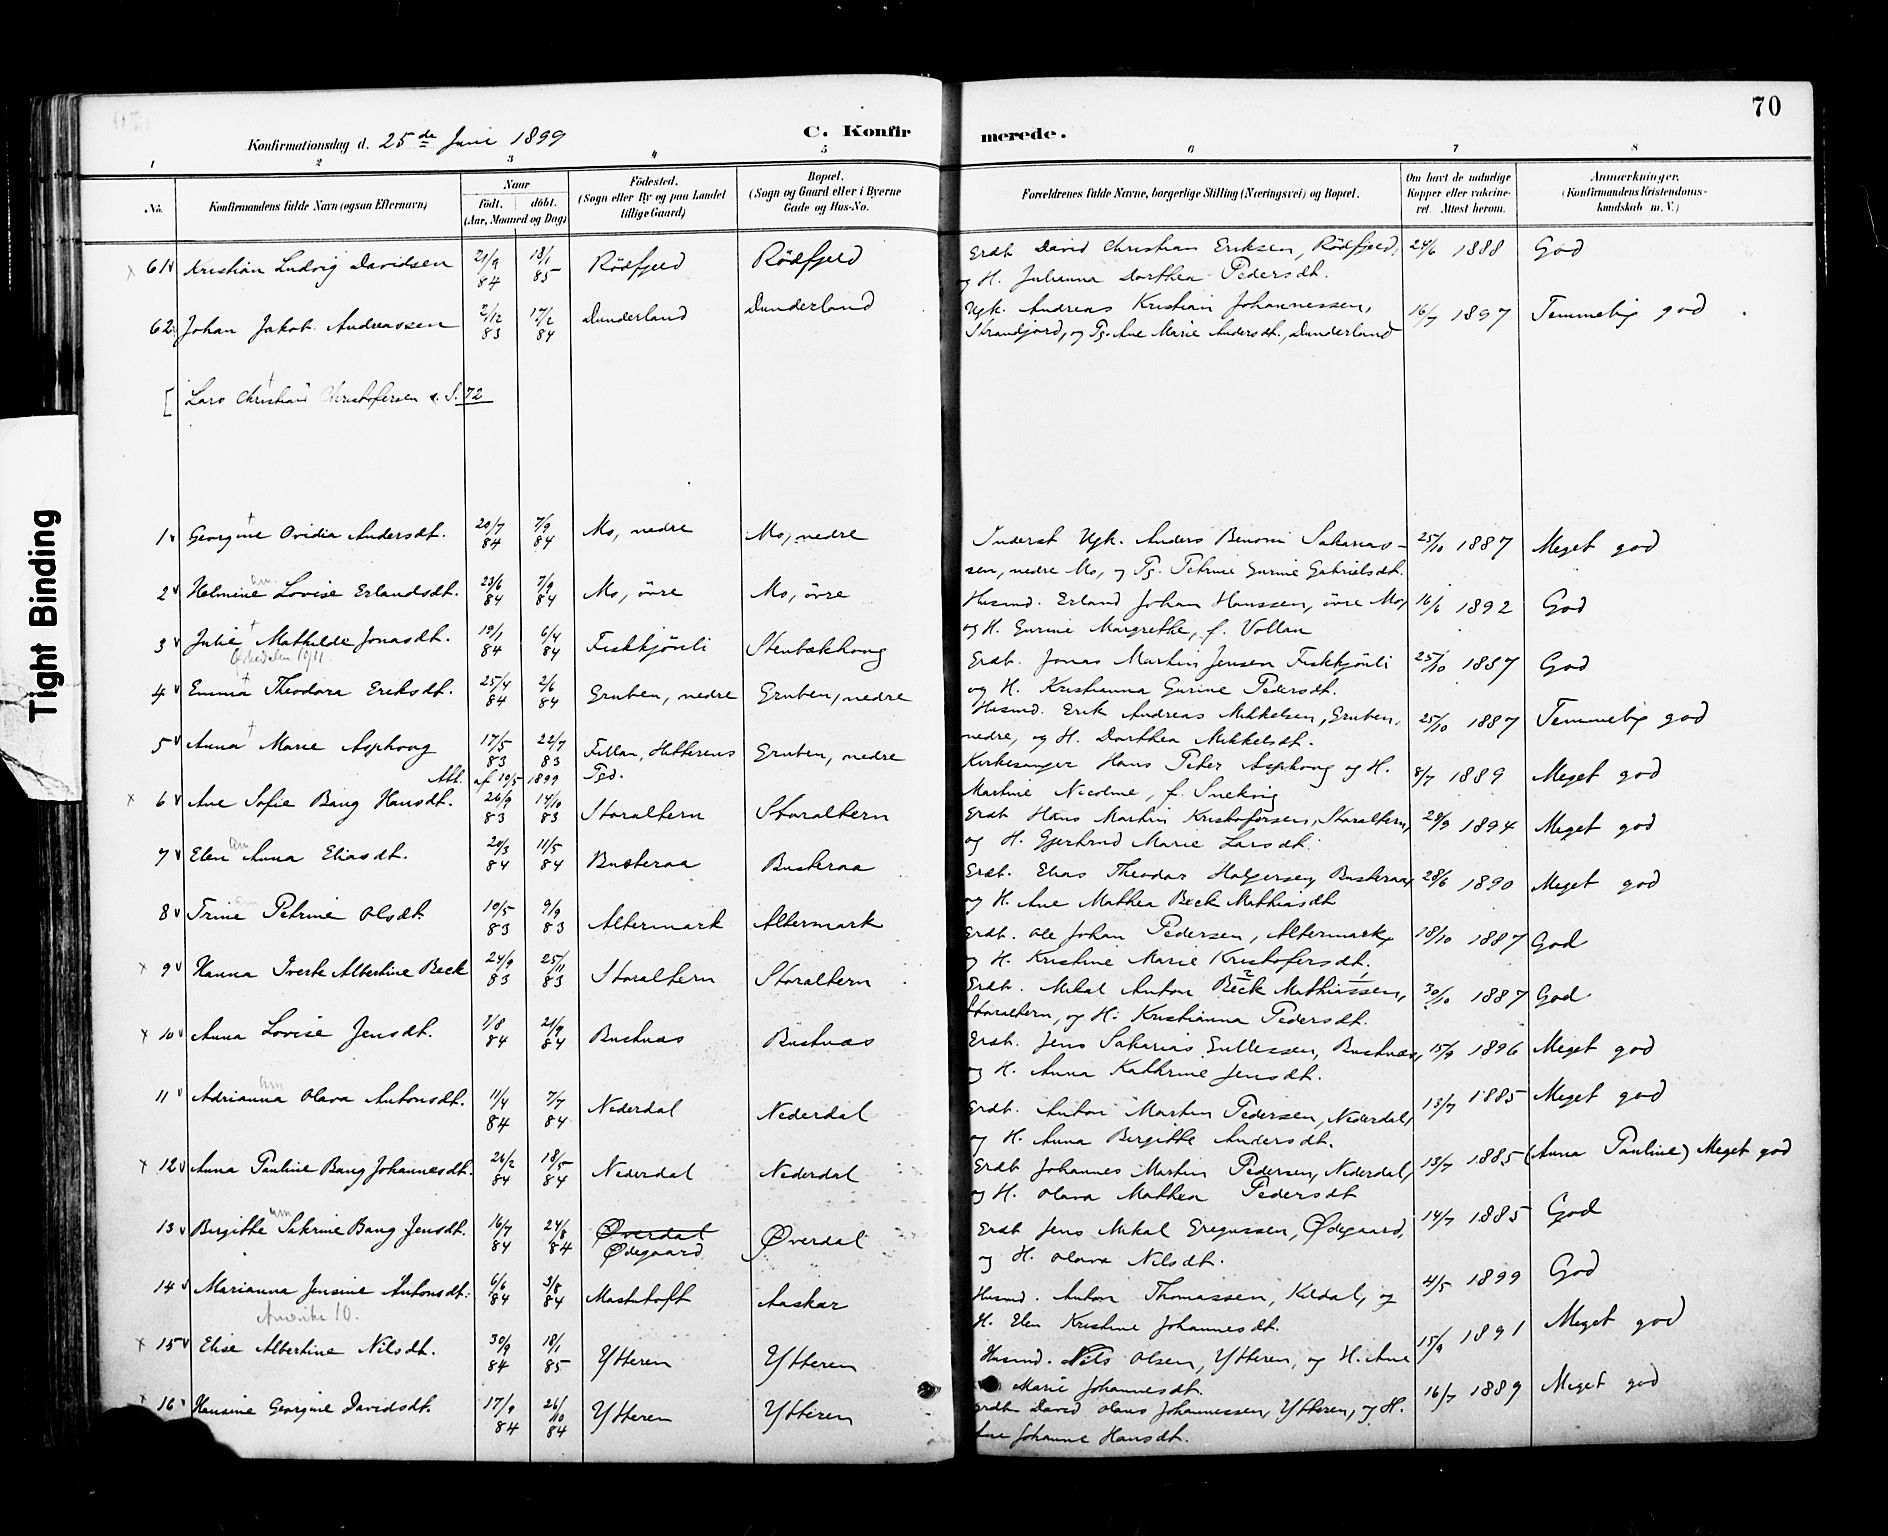 70
Konfirmationsdag d. 25de Juni 1899
C. Konfirmerede.
1 2 3 4 5 6 7 8
No. Konfirmandens fulde Navn (ogsaa Efternavn) Naar Født. døbt. (Aar, Maaned og Dag) Fødested. (Sogn eller By og paa Landet tillige Gaard) Bopæl. (Sogn og Gaard eller i Byerne Gade og Hus-No. Forældrenes fulde Navne, borgerlige Stilling (Næringsvei) og Bopæl. Om havt de naturlige Kopper eller vaccineret. Attest herom. Anmærkninger. (Konfirmandens Kristendomskundskab m. V.)
61 Kristian Ludvig Davidsen 21/9 84 18/1 85 Rödfjeld Rödfjeld Grdb. David Christian Eriksen, Rödfjeld, 24/6 1888 God
og H. Julianna Dorthea Pedersdt.
62 Johan Jakob Andreassen 2/12 83 17/2 84 Dunderland Dunderland Ugk. Andreas Kristian Johannessen, 16/7 1897 Temmelig god
Strandjord, og Pg. Ane Marie Andersdt., Dunderland
[ Lars Christian Christofersen s. S. 72
1 Georgine Ovidia Andersdt. 20/7 84 7/9 84 Mo, nedre Mo, nedre Inderst Ugk. Anders Benoni Sakarias- 25/10 1887 Meget god
sen, nedre Mo, og Pg. Petrine Gurine Gabrielsdt.
2 Helmine Lovise Erlandsdt. 23/6 84 7/9 84 Mo, övre Mo, övre Husmd. Erland Johan Hanssen, övre Mo, 16/6 1892 God
og H. Gurine Margrethe, f. Vollan
3 Julie Mathilde Jonasdt. 19/1 84 6/4 84 Fiskkjönli Stenbækhoug Grdb. Jonas Martin Jensen Fiskkjönli 25/10 1887 God
og H. Kristianna Gurine Pedersdt.
4 Emma Theodora Eriksdt. 25/4 84 2/6 84 Gruben, nedre Gruben, nedre Husmd. Erik Andreas Mikkelsen, Gruben, 25/10 1887 Temmelig god
nedre, og H. Dorthea Mikkelsdt.
5 Anna Marie Asphoug 17/5 83 22/7 83 Fillan, Hitterens Pgd. Gruben, nedre Kirkesanger Hans Peter Asphoug og H. 8/7 1889 Meget god
Att. af 19/5 1899
Martine Nicoline, f. Snekvig
6 Ane Sofie Bang Hansdt. 26/9 83 14/10 83 Storaltern Storaltern Grdb. Hans Martin Kristofersen, Storaltern, 28/9 1894 Meget god
og H. Gjertrud Marie Larsdt.
7 Elen Anna Eliasdt. 20/3 84 11/5 84 Busteraa Busteraa Grdb. Elias Theodor Holgersen, Busteraa, 28/6 1890 Meget god
og H. Ane Mathea Beck Mathiasdt
8 Trine Petrine Olsdt. 10/5 83 9/9 83 Altermark Altermark Grdb. Ole Johan Pedersen, Altermark, 18/10 1887 God
og H. Kristine Marie Kristofersdt.
9 Hanna Iverte Albertine Beck 24/9 83 25/11 83 Storaltern Storaltern Grdb. Mikal Anton Beck Mathiassen, 30/10 1887 God
Storaltern, og H. Kristianna Pedersdt.
10 Anna Lovise Jensdt. 7/8 84 21/9 84 Bustnæs Bustnæs Grdb. Jens Sakarias Gullessen, Bustnæs, 15/9 1896 Meget god
og H. Anna Kathrine Jensdt.
11 Adrianna Olava Antonsdt. 11/4 84 7/7 84 Nederdal Nederdal Grdb. Anton Martin Pedersen, Nederdal, 13/7 1885 Meget god
og H. Anna Bergitte Andersdt.
12 Anna Pauline Bang Johannesdt. 26/2 84 18/5 84 Nederdal Nederdal Grdb Johannes Martin Pedersen, Nederdal, 13/7 1885 (Anna Pauline) Meget god
og H. Olava Mathea Pedersdt
13 Bergitte Sakrine Bang Jensdt. 16/7 84 24/8 84 Øverdal Ødegaard Øverdal Grdb Jens Mikal Gregussen, Ødegaard, 14/7 1885 God
og H. Olava Nilsdt.
14 Marianna Jensine Antonsdt. 6/6 84 3/8 84 Mastutoft Aaskar Husmd. Anton Thomassen, Kildal, og 4/5 1899 God
Amerika 10.
H. Elen Kristine Johannesdt.
15 Elise Albertine Nilsdt. 30/9 84 18/1 85 Ytteren Ytteren Husmd. Nils Olsen, Ytteren, og H. Ane 15/9 1891 Meget god
Marie Johannesdt.
16 Hansine Georgine Davidsdt. 17/9 84 26/10 84 Ytteren Ytteren Grdb David Olaus Johannessen, Ytteren, og H. 16/7 1889 Meget god
Ane Johanne Hansdt.
Tight Binding